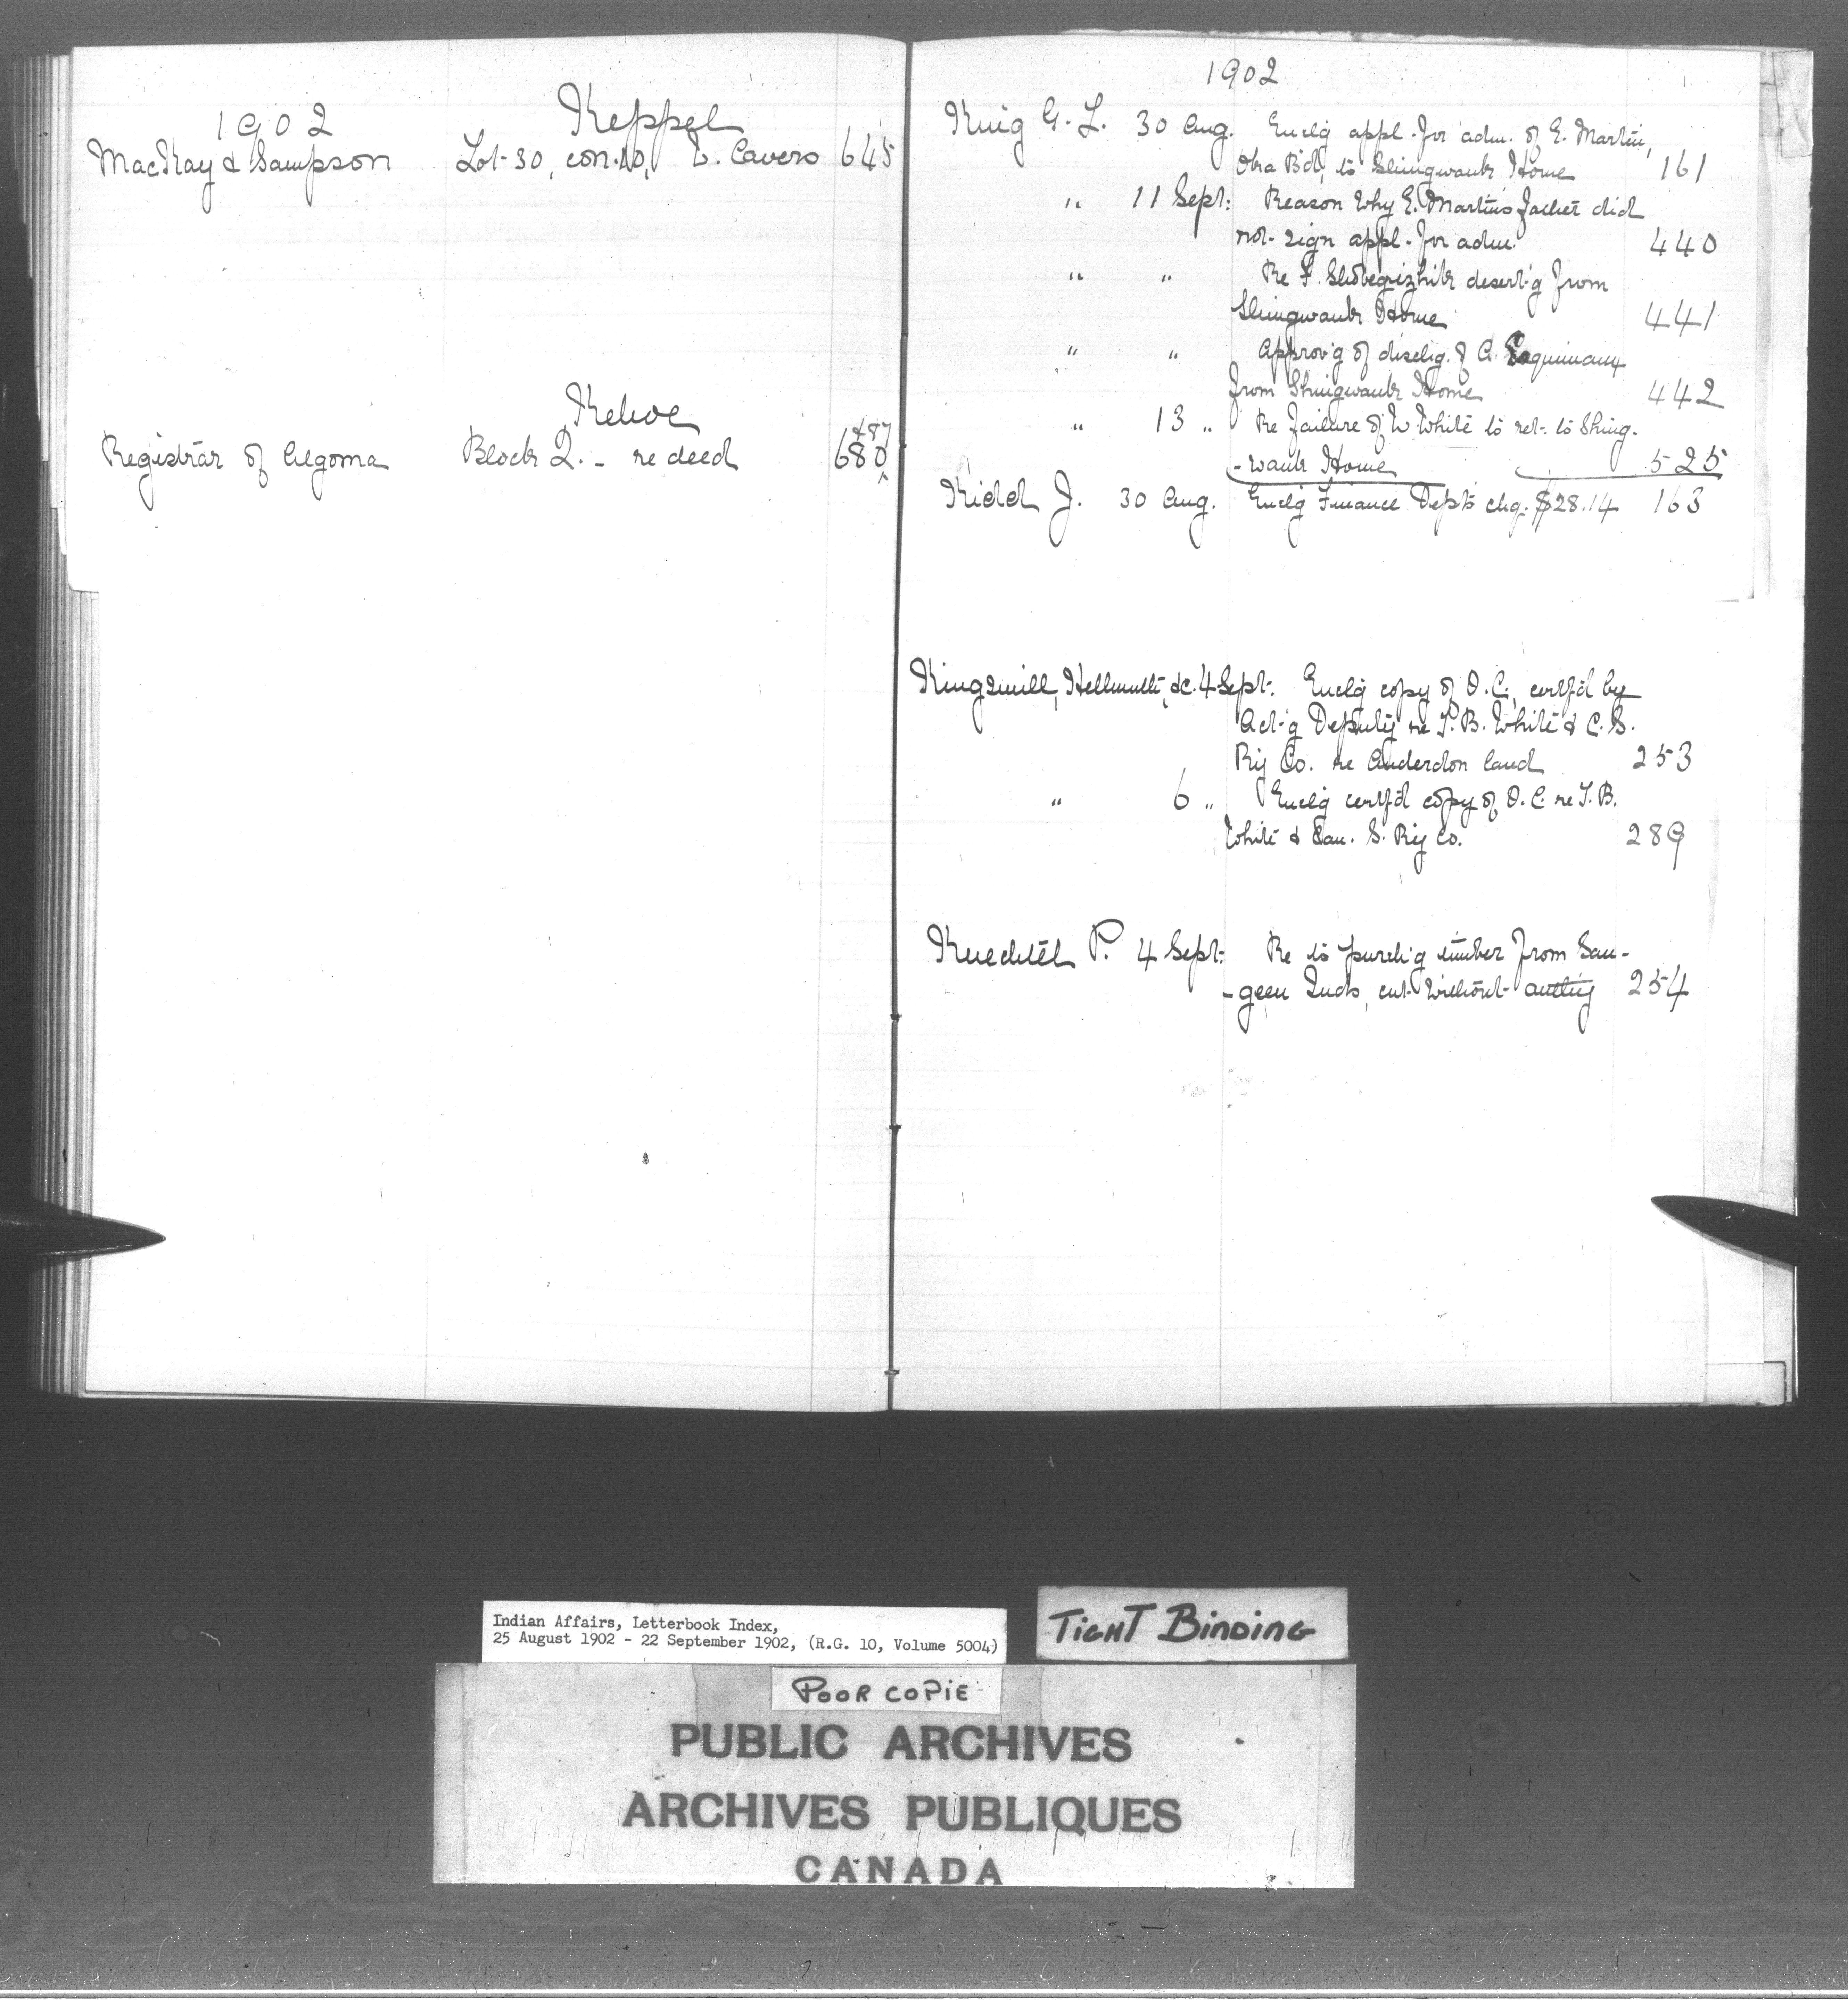 1902
Keppel
MacKay & Sampson Lot 30, con. 10, T. Cavers 645
Kehoe
Registrar of Algoma Block 2. - re deed 680 & 87
1902
King G. L. 30 Aug. Enclg appl. for adm. of E. Martin,
Bd, to Shingwauk Home 161
" 11 Sept. Reason why E. Martin's father did
not sign appl. for adm. 440
" " Re F. Shobegizhik desert'g from
Shingwauk Home 441
" " Approv'g of dischg. of A. Esquimaux
from Shingwauk Home 442
" 13 " Re failure of W. White to ret. to Shing-
-wauk Home 525
Kidd J. 30 Aug. Enclg Finance Dept's chq. $28.14 163
Kingsmill, Hellmuth, &c. 4 Sept. Enclg copy of O.C., certf'd by
Act'g Deputy re T. B. White & C. S.
Ry Co. re Anderdon land 253
" 6 " Enclg certf'd copy of O. C. re T. B.
White & Can. S. Ry Co. 289
Knechtel P. 4 Sept. Re to purch'g timber from Sau-
-geen Inds, cut without authy 254
Indian Affairs, Letterbook Index,
25 August 1902 - 22 September 1902, (R.G. 10, Volume 5004)
TIGHT BINDING
POOR COPIE
PUBLIC ARCHIVES
ARCHIVES PUBLIQUES
CANADA